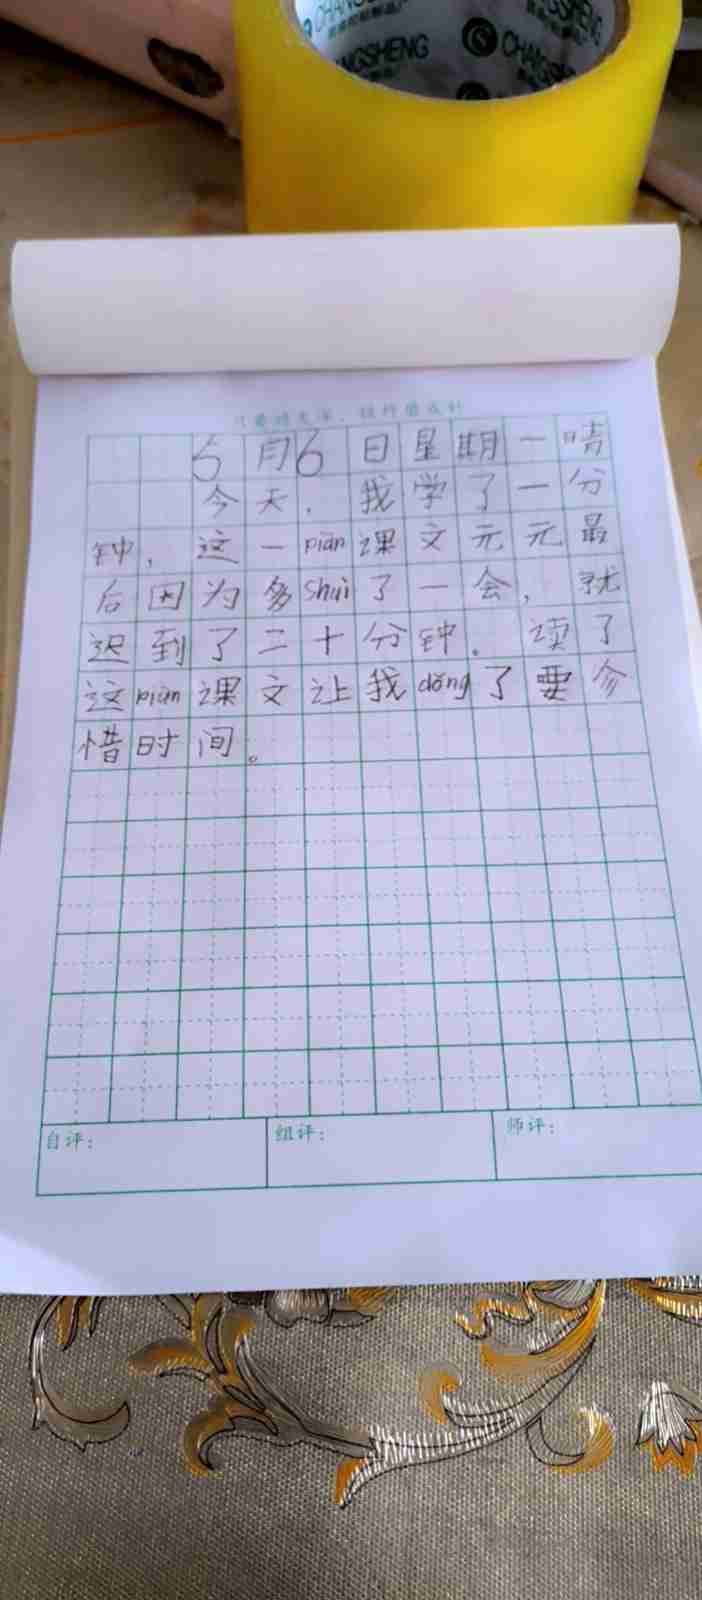 CHANGSHENG
CHANGSHENG
6月6日星期一晴
今天，我学了一分
钟，这一piān课文元元最
后因为多shuì了一会，就
迟到了二十分钟。读了
这piān课文让我dǒng了要
惜时间。
自评：
组评：
师评：